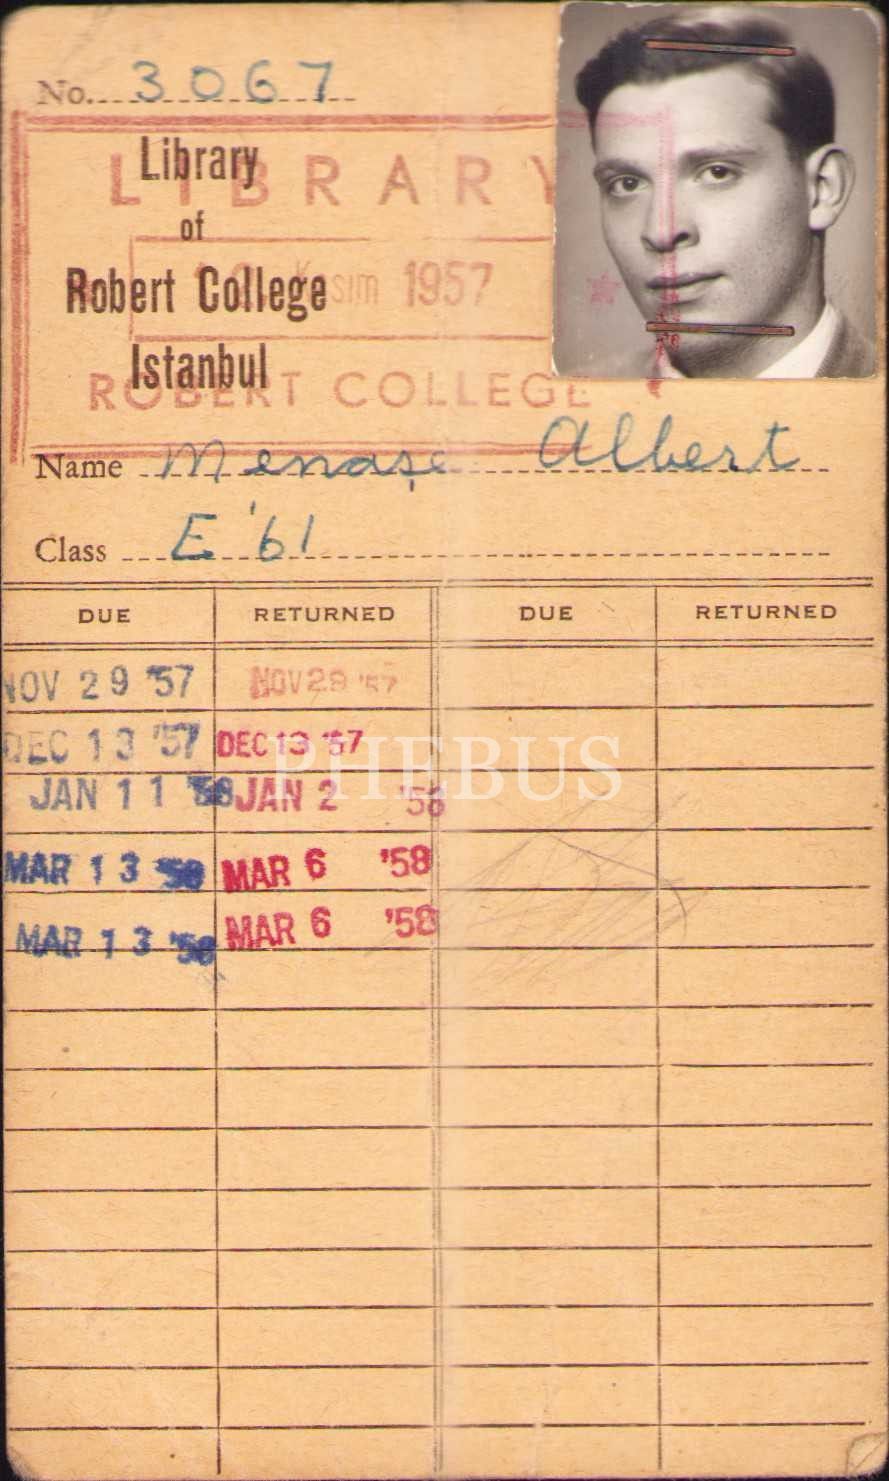 No. 3067
LIBRARY
Library
of
Kasım 1957
Robert College
Istanbul
ROBERT COLLEGE
Name Menaşe Albert
Class E '61
DUE RETURNED DUE RETURNED
NOV 29 '57 NOV 29 '57
DEC 13 '57 DEC 13 '57
JAN 11 '58 JAN 2 '58
PHEBUS
MAR 13 '58 MAR 6 '58
MAR 13 '58 MAR 6 '58